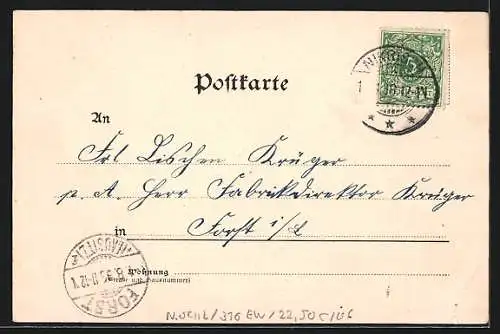 Postkarte
5
An
Frl Lischen Krüger
p. A. Herr Fabrikdirektor Krüger
in Forst i/L
Wohnung
(Straße und Hausnummer)
(LAUSITZ)
11-12 V
FORST